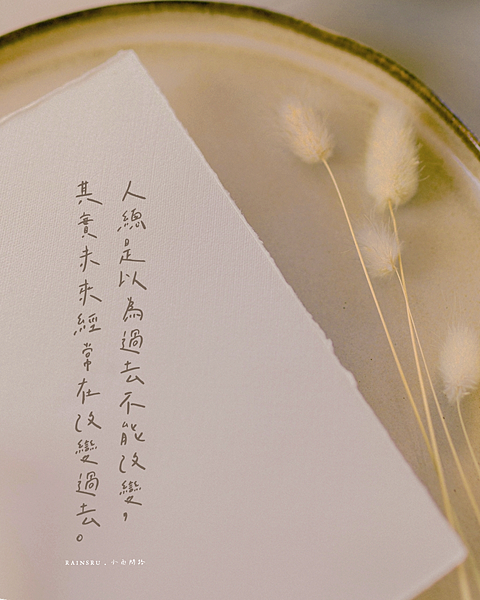 人總是以為過去不能改變，
其實未來經常在改變過去。
RAINSRU . 小雨間話